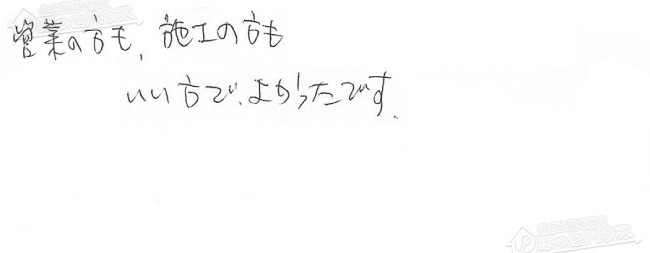 営業の方も、施工の方も
いい方で、よかったです。